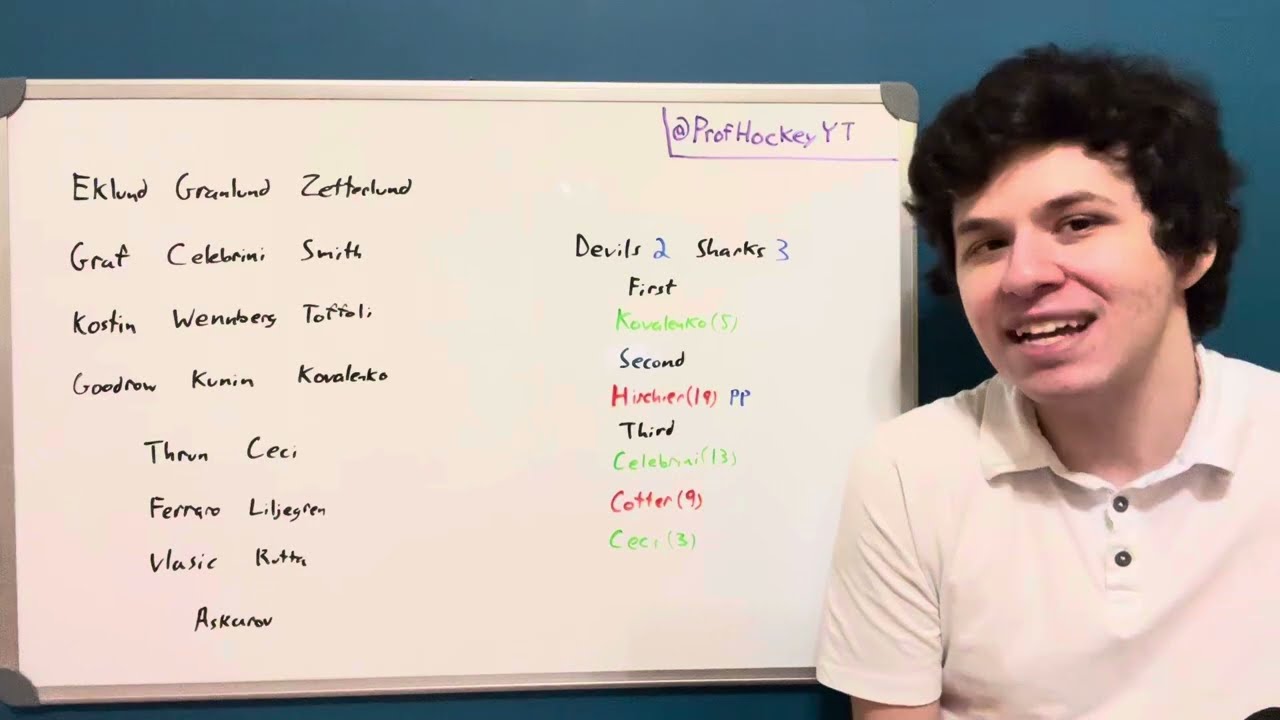 @ProfHockeyYT
Eklund Granlund Zetterlund
Graf Celebrini Smith
Kostin Wennberg Toffoli
Goodrow Kunin Kovalenko
Thrun Ceci
Ferraro Liljegren
Vlasic Rutta
Askarov
Devils 2 Sharks 3
First
Kovalenko(5)
Second
Hischier(19) PP
Third
Celebrini(13)
Cotter(9)
Ceci(3)